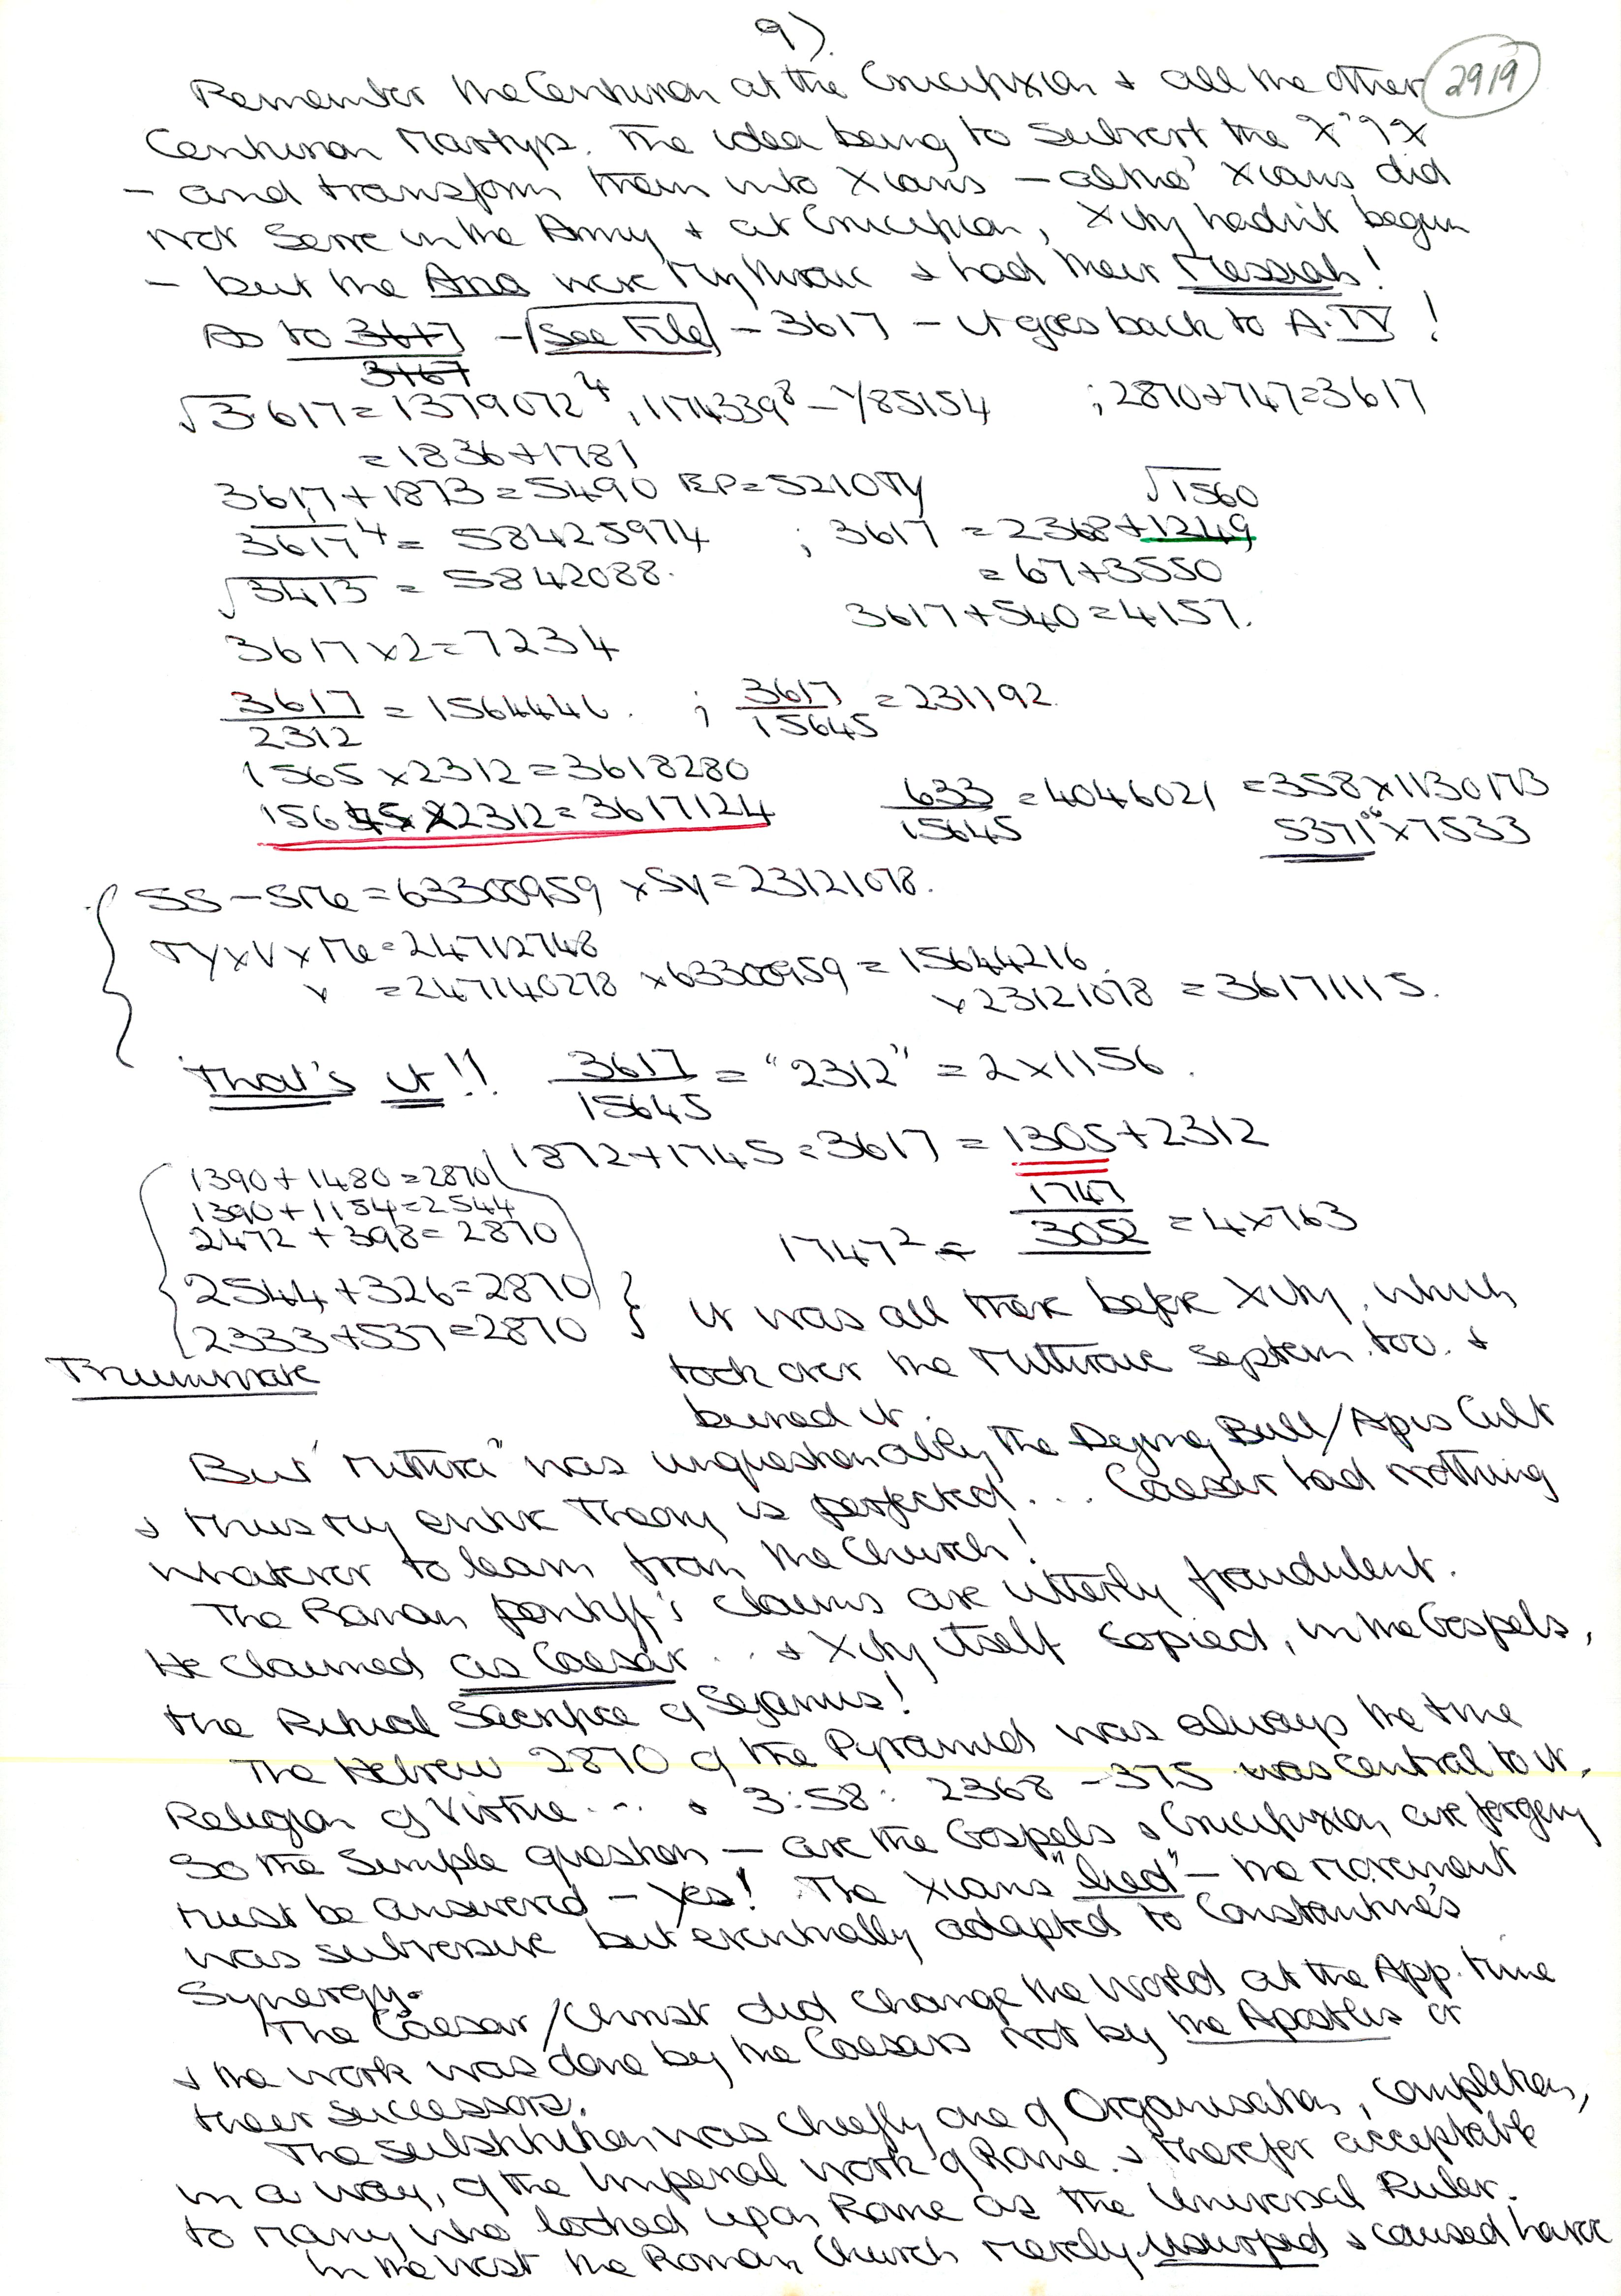 9).
2919
Remember the Centurion at the Crucifixion & all the other
Centurion Martyrs. The idea being to Subvert the
- and transform them into Xians - altho' Xians did
not Serve in the Army & at Crucifixion, Xity hadn't begun
- but the were Mythraic & had their Messiah!
As to 3617 - See File - 3617 - it goes back to A.IV!
3167
√3.617 = 1379072⁴, 1174339⁸ - 1/85154 ; 2870+747=3617
= 1836+1781
3617+1873=5490 EP=5210Ty √1560
3617⁴ = 58425974 ; 3617 = 2368+1249
√3413 = 5842088. = 67+3550
3617+540=4157.
3617×2=7234
3617/2312 = 1564446. ; 3617/15645 = 231192.
1565×2312=3618280
15645×2312=3617124 633/15645 = 4046021 =358×1130173
5371°°×7533
SS-SMe=63300959 ×Sy=23121078.
TY×V×Me=24712748
× =247140278 ×63300959=15644216.
×23121078 = 36171115.
That's it!! 3617/15645 = "2312" = 2×1156.
1872+1745=3617=1305+2312
1390+1480=2870
1390+1154=2544
1747
2472+398=2870
1747² = 3052 = 4×763
2544+326=2870
2333+537=2870
it was all there before Xity, which
Triumvirate
took over the Mithraic system too. &
buried it.
But "Mithra" was unquestionably the Dying Bull/Apis Cult
& thus my entire Theory is perfected... Caesar had nothing
whatever to learn from the Church!
The Roman pontiff's claims are utterly fraudulent.
He claimed as Caesar... & Xity itself copied, in the Gospels,
the Ritual Sacrifice of Sejanus!
The Hebrew 2870 of the Pyramid was always the true
Religion of Virtue... & 3:58: 2368 - 375 was central to it.
So the Simple question - are the Gospels & Crucifixion are forgery
must be answered - Yes! The Xians "lied" - the movement
was subversive but eventually adapted to Constantine's
Synergy.
The Caesar/Christ did change the World at the App. time
& the work was done by the Caesars not by the Apostles or
their successors.
The substitution was chiefly one of Organisation, completion,
in a way, of the Imperial work of Rome. & therefor acceptable
to many who looked upon Rome as the Universal Ruler.
In the West the Roman Church merely usurped & caused havoc